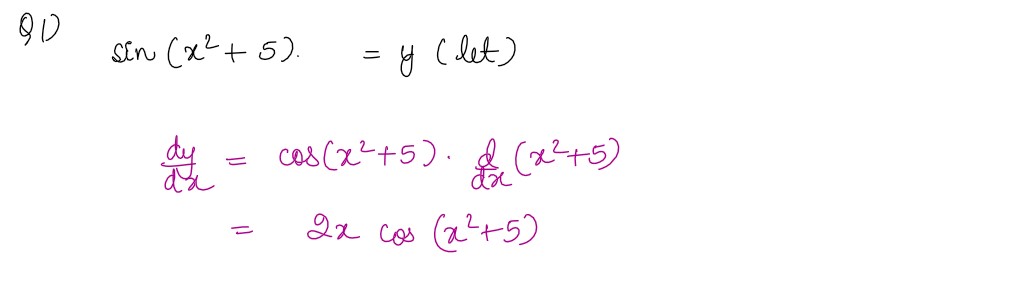 Q1)
sin (x² + 5). = y (let)
dy/dx = cos(x²+5) · d/dx (x²+5)
= 2x cos (x²+5)